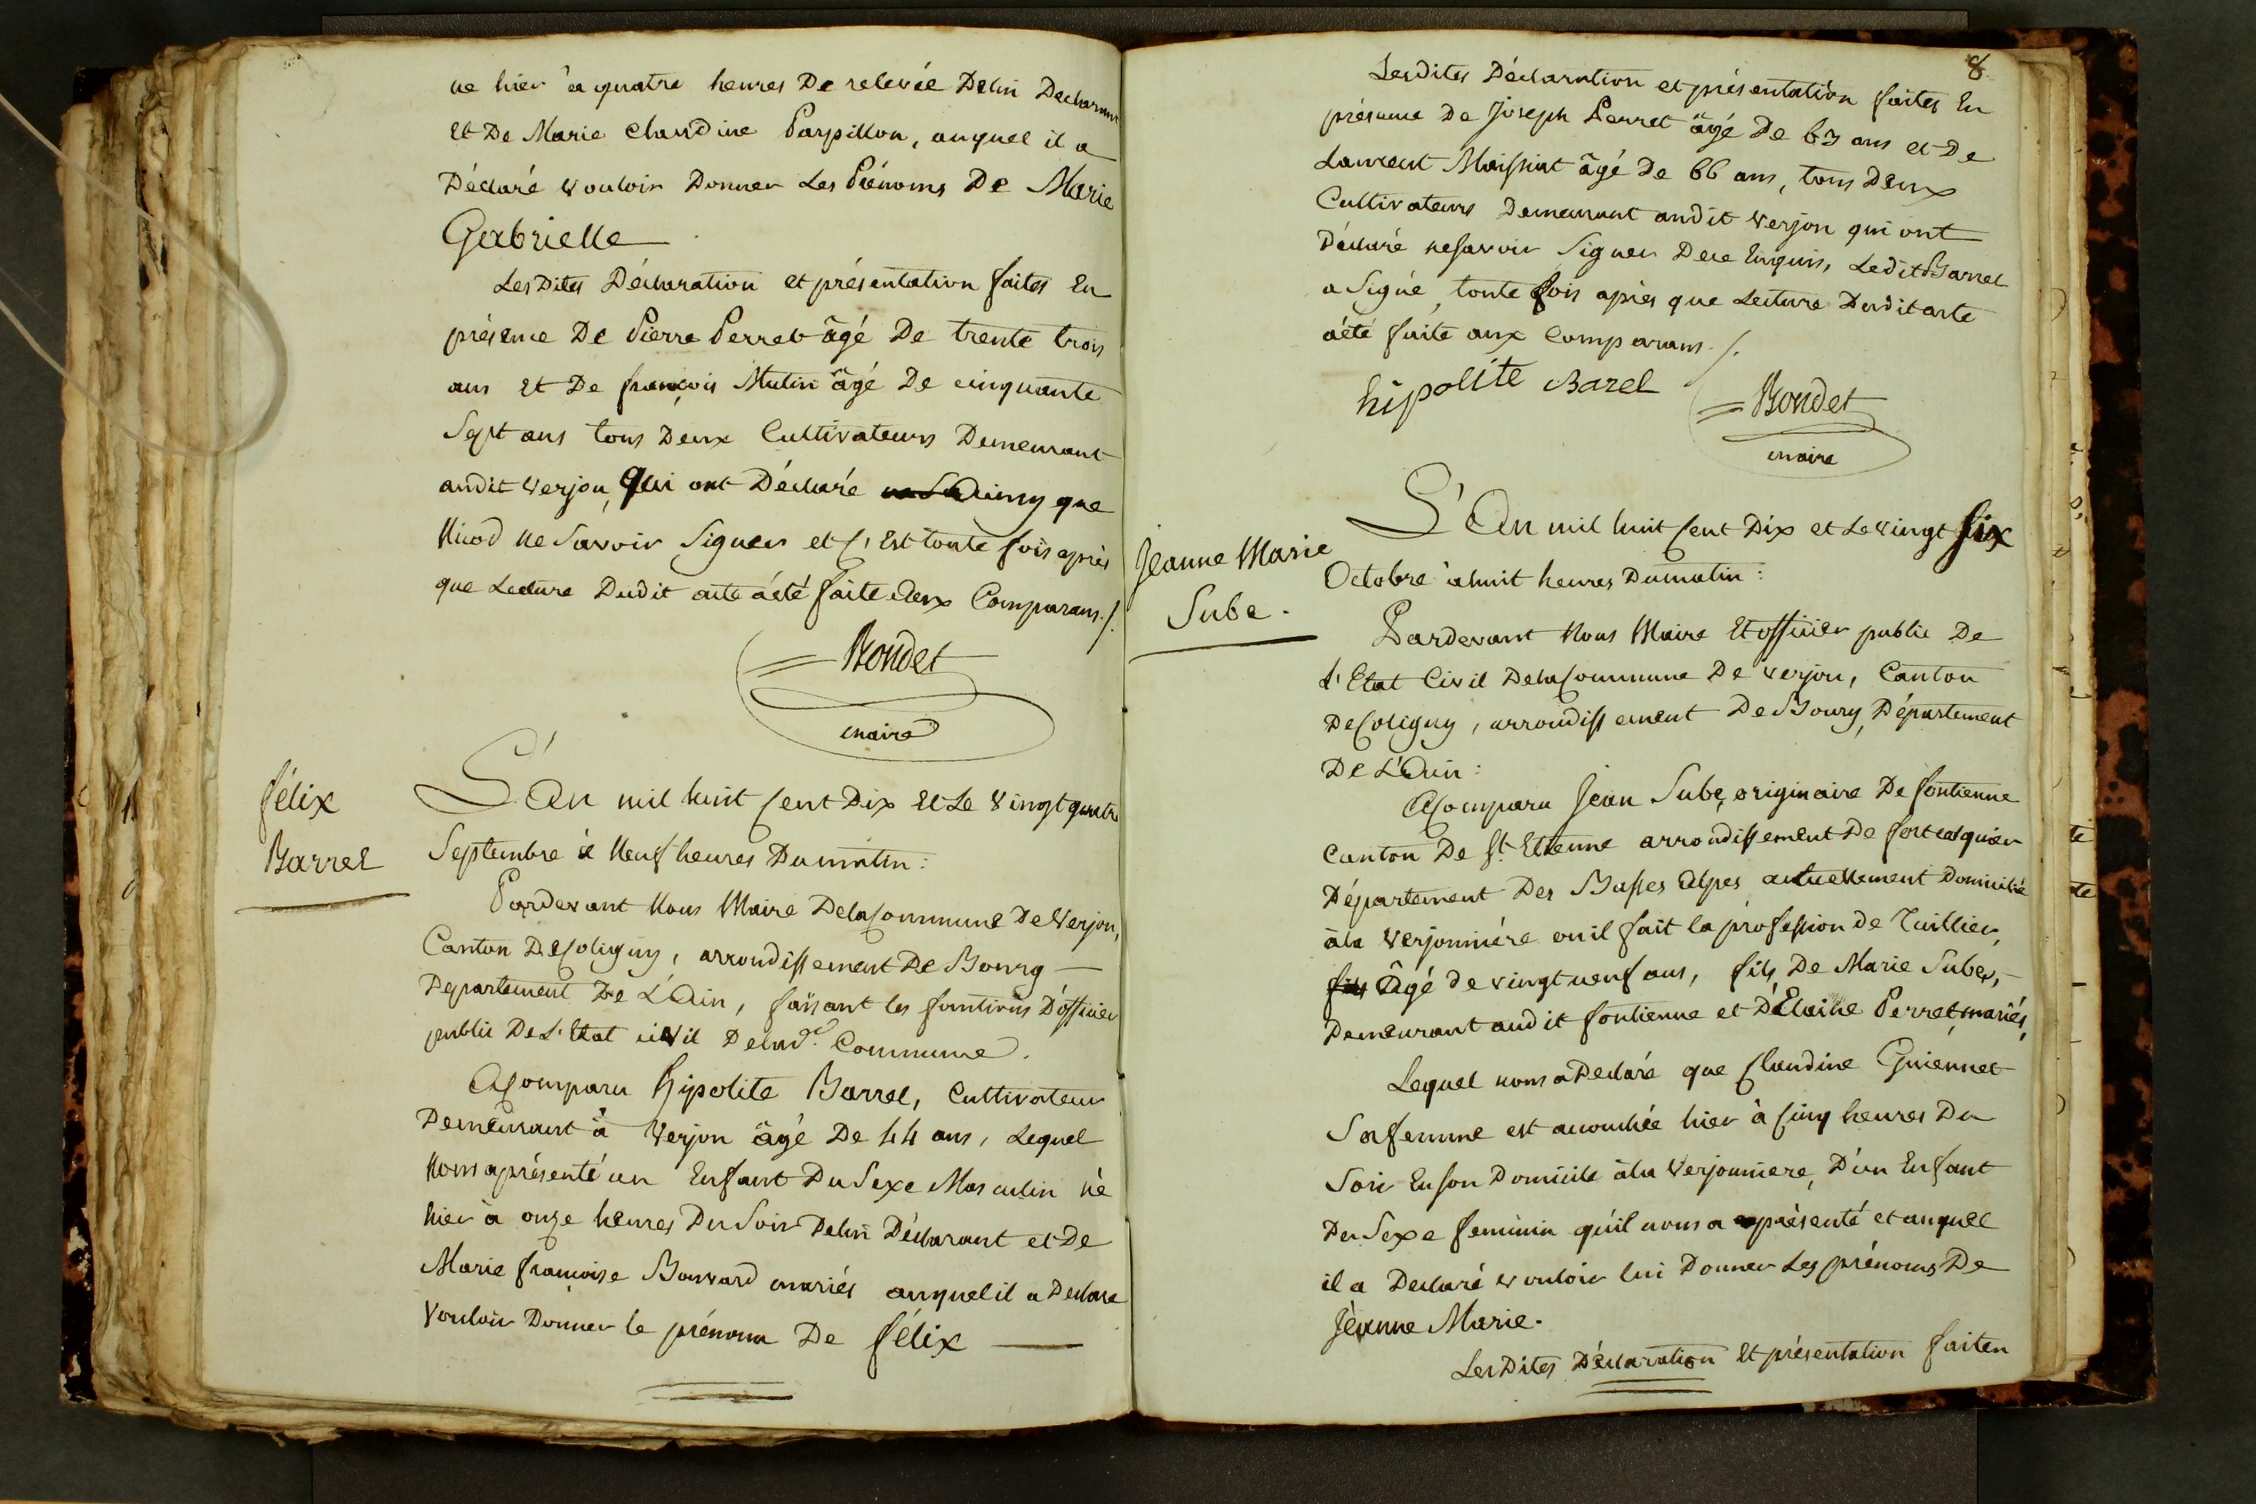 né hier à quatre heures De relevée Delui Declarant
Et De Marie Claudine Parpillon, auquel il a
Déclaré vouloir Donner Les Prénoms De Marie
Gabrielle
LesDites Déclaration et présentation faites En
présence De Pierre Perret âgé De trente trois
ans Et De françois Mutin âgé De cinquante
Sept ans tous Deux Cultivateurs Demeurant
audit Verjon, Qui ont Déclaré que
Nicod ne Savoir Signer et C'Est toute fois après
que Lecture Dudit acte aété faite aux Comparans ./.
Bondet
maire
félix
Barrel
L'An mil huit Cent Dix Et Le Vingt quatre
Septembre à Neuf heures Dumatin :
Pardevant Nous Maire DelaCommune DeVerjon,
Canton DeColigny, arrondissement De Bourg
Département De L'Ain, faisant les fontions D'officier
public De L'Etat civil Deladte Commune.
AComparu hipolite Barrel, Cultivateur
Demeurant à Verjon âgé De 44 ans, Lequel
Nous aprésenté un Enfant Du Sexe Masculin né
hier à onze heures Du Soir Delui Déclarant et De
Marie françoise Bouvard mariés auquel il a Declaré
Vouloir Donner le prénom De félix
8
Lesdites Déclaration et présentation faites En
présence De Joseph Perret âgé De 63 ans et De
Laurent Maissiat âgé De 66 ans, tous Deux
Cultivateurs Demeurant audit Verjon qui ont
Déclaré neSavoir Signer Dece Enquis, Ledit Barrel
a Signé, toute fois après que Lecture Dudit acte
aété faite aux Comparans ./.
hipolite Barel
Bondet
maire
Jeanne Marie
Sube.
L'An mil huit Cent Dix et Le vingt six
Octobre à huit heures Dumatin :
Pardevant Nous Maire Et officier public De
L'Etat Civil DelaCommune De Verjon, Canton
DeColigny, arrondissement De Bourg, Département
De L'Ain :
AComparu Jean Sube, originaire De fontienne
Canton De St. Etienne arrondissement De forcalquier
Département Des Basses Alpes actuellement Domicilié
àla Verjonnière ouil fait la profession de Tuillier,
fils Âgé de vingt neuf ans, fils De Marie Sube,
Demeurant audit fontienne et D'Elaine Perret mariés,
Lequel nous a Declaré que Claudine Guiennet
Sa femme est accouchée hier à Cinq heures Du
Soir En son Domicile àla Verjonniere, D'un Enfant
Du Sexe feminin qu'il nous a présenté et auquel
il a Declaré vouloir lui Donner Les prénoms De
Jeanne Marie.
LesDites Déclaration Et présentation faiten